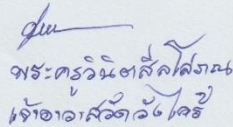 พระครูวินิตสีลโสภณ
เจ้าอาวาสวัดวังไคร้